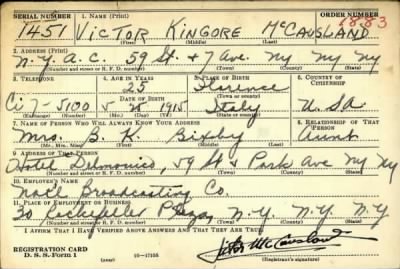 SERIAL NUMBER 1. NAME (Print) ORDER NUMBER
1451 VICTOR KINGORE McCAUSLAND 1883
(First) (Middle) (Last)
2. ADDRESS (Print)
N.Y. A.C. 59 St. & 7 Ave. Ny Ny Ny
(Number and street or R. F. D. number) (Town) (County) (State)
3. TELEPHONE 4. AGE IN YEARS 5. PLACE OF BIRTH 6. COUNTRY OF CITIZENSHIP
25 Florence
DATE OF BIRTH (Town or county)
Ci 7-5100 5 1915 Italy U.S.A
(Exchange) (Number) (Mo.) (Day) (Yr.) (State or country)
7. NAME OF PERSON WHO WILL ALWAYS KNOW YOUR ADDRESS 8. RELATIONSHIP OF THAT PERSON
Mrs. B. K. Bixby Aunt
(Mr., Mrs., Miss) (First) (Middle) (Last)
9. ADDRESS OF THAT PERSON
Hotel Delmonico, 59 St & Park Ave Ny Ny
(Number and street or R. F. D. number) (Town) (County) (State)
10. EMPLOYER'S NAME
Natl Broadcasting Co.
11. PLACE OF EMPLOYMENT OR BUSINESS
30 Rockefeller Plaza, N.Y. N.Y. N.Y
(Number and street or R. F. D. number) (Town) (County) (State)
I AFFIRM THAT I HAVE VERIFIED ABOVE ANSWERS AND THAT THEY ARE TRUE.
REGISTRATION CARD
D. S. S. Form 1 16—17105 Victor McCausland
(Registrant's signature)